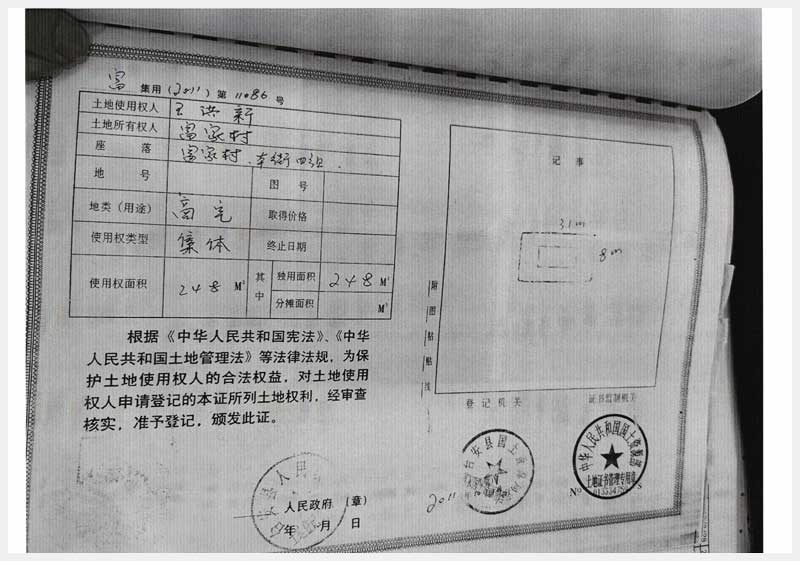 富 集用(2011)第11086号
土地使用权人 王洪新
土地所有权人 富家村
座落 富家村.东街四组.
地号 图号
地类(用途) 取得价格
使用权类型 集体 终止日期
使用权面积 248 M² 其中 独用面积 248 M²
分摊面积 M²
根据《中华人民共和国宪法》、《中华
人民共和国土地管理法》等法律法规,为保
护土地使用权人的合法权益,对土地使用
权人申请登记的本证所列土地权利,经审查
核实,准予登记,颁发此证。
安县人民
人民政府(章)
年 月 日
记事
31m
8m
附图粘贴线
登记机关
安县国土资源局
2011
证书监制机关
中华人民共和国国土资源部
土地证书管理专用章
No